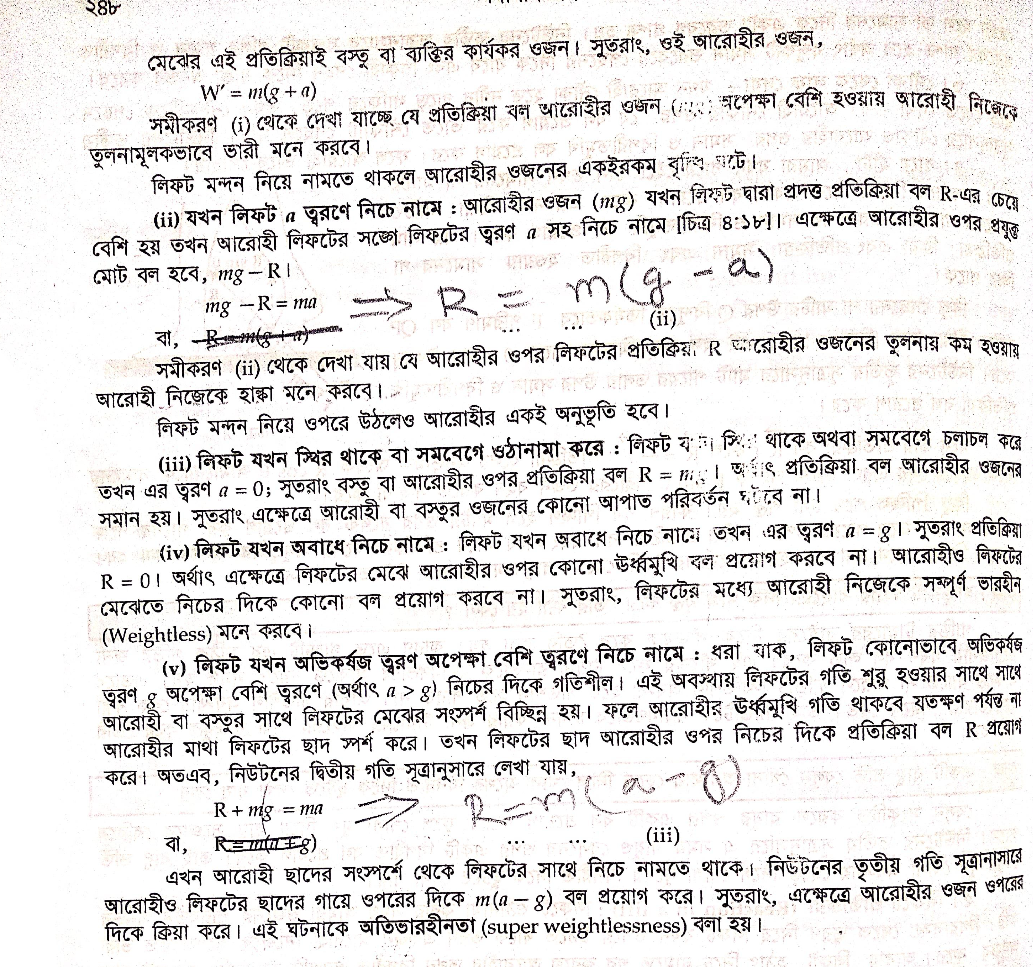 ২৪৮
মেঝের এই প্রতিক্রিয়াই বস্তু বা ব্যক্তির কার্যকর ওজন। সুতরাং, ওই আরোহীর ওজন,
W′ = m(g + a)
সমীকরণ (i) থেকে দেখা যাচ্ছে যে প্রতিক্রিয়া বল আরোহীর ওজন অপেক্ষা বেশি হওয়ায় আরোহী নিজেকে
তুলনামূলকভাবে ভারী মনে করবে।
লিফট মন্দন নিয়ে নামতে থাকলে আরোহীর ওজনের একইরকম বৃদ্ধি ঘটে।
(ii) যখন লিফট a ত্বরণে নিচে নামে : আরোহীর ওজন (mg) যখন লিফট দ্বারা প্রদত্ত প্রতিক্রিয়া বল R-এর চেয়ে
বেশি হয় তখন আরোহী লিফটের সঙ্গে লিফটের ত্বরণ a সহ নিচে নামে [চিত্র ৪·১৮]। এক্ষেত্রে আরোহীর ওপর প্রযুক্ত
মোট বল হবে, mg – R।
mg – R = ma ⇒ R = m(g - a)
বা, R = m(g + a) ... ... (ii)
সমীকরণ (ii) থেকে দেখা যায় যে আরোহীর ওপর লিফটের প্রতিক্রিয়া R আরোহীর ওজনের তুলনায় কম হওয়ায়
আরোহী নিজেকে হাল্কা মনে করবে।
লিফট মন্দন নিয়ে ওপরে উঠলেও আরোহীর একই অনুভূতি হবে।
(iii) লিফট যখন স্থির থাকে বা সমবেগে ওঠানামা করে : লিফট যখন স্থির থাকে অথবা সমবেগে চলাচল করে
তখন এর ত্বরণ a = 0; সুতরাং বস্তু বা আরোহীর ওপর প্রতিক্রিয়া বল R = mg। অর্থাৎ প্রতিক্রিয়া বল আরোহীর ওজনের
সমান হয়। সুতরাং এক্ষেত্রে আরোহী বা বস্তুর ওজনের কোনো আপাত পরিবর্তন ঘটবে না।
(iv) লিফট যখন অবাধে নিচে নামে : লিফট যখন অবাধে নিচে নামে তখন এর ত্বরণ a = g। সুতরাং প্রতিক্রিয়া
R = 0। অর্থাৎ এক্ষেত্রে লিফটের মেঝে আরোহীর ওপর কোনো ঊর্ধ্বমুখি বল প্রয়োগ করবে না। আরোহীও লিফটের
মেঝেতে নিচের দিকে কোনো বল প্রয়োগ করবে না। সুতরাং, লিফটের মধ্যে আরোহী নিজেকে সম্পূর্ণ ভারহীন
(Weightless) মনে করবে।
(v) লিফট যখন অভিকর্ষজ ত্বরণ অপেক্ষা বেশি ত্বরণে নিচে নামে : ধরা যাক, লিফট কোনোভাবে অভিকর্ষজ
ত্বরণ g অপেক্ষা বেশি ত্বরণে (অর্থাৎ a > g) নিচের দিকে গতিশীল। এই অবস্থায় লিফটের গতি শুরু হওয়ার সাথে সাথে
আরোহী বা বস্তুর সাথে লিফটের মেঝের সংস্পর্শ বিচ্ছিন্ন হয়। ফলে আরোহীর ঊর্ধ্বমুখি গতি থাকবে যতক্ষণ পর্যন্ত না
আরোহীর মাথা লিফটের ছাদ স্পর্শ করে। তখন লিফটের ছাদ আরোহীর ওপর নিচের দিকে প্রতিক্রিয়া বল R প্রয়োগ
করে। অতএব, নিউটনের দ্বিতীয় গতি সূত্রানুসারে লেখা যায়,
R + mg = ma ⇒ R = m(a - g)
বা, R = m(a + g) ... ... (iii)
এখন আরোহী ছাদের সংস্পর্শে থেকে লিফটের সাথে নিচে নামতে থাকে। নিউটনের তৃতীয় গতি সূত্রানাসারে
আরোহীও লিফটের ছাদের গায়ে ওপরের দিকে m(a – g) বল প্রয়োগ করে। সুতরাং, এক্ষেত্রে আরোহীর ওজন ওপরের
দিকে ক্রিয়া করে। এই ঘটনাকে অতিভারহীনতা (super weightlessness) বলা হয়।